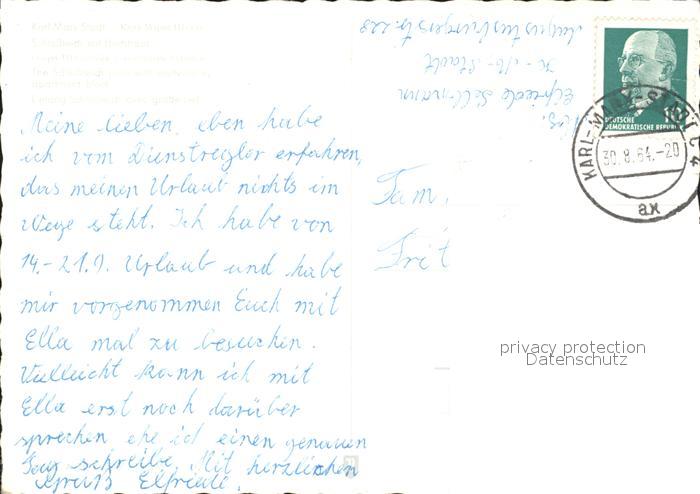 Karl-Marx-Stadt
Meine lieben, eben habe
ich vom Dienstregler erfahren,
das meinen Urlaub nichts im
Wege steht. Ich habe von
14.-21.9. Urlaub und habe
mir vorgenommen Euch mit
Ella mal zu besuchen.
Vielleicht kann ich mit
Ella erst noch darüber
sprechen ehe ich einen genauen
Tag schreibe. Mit herzlichen
Gruß Elfriede.
Abs.
Elfriede
K.-M.-Stadt
Augustusburgerstr. 228
Fam.
Frit
DEUTSCHE
DEMOKRATISCHE REPUBLIK
10
KARL-MARX-STADT C 4
30.8.64.-20
ax
privacy protection
Datenschutz